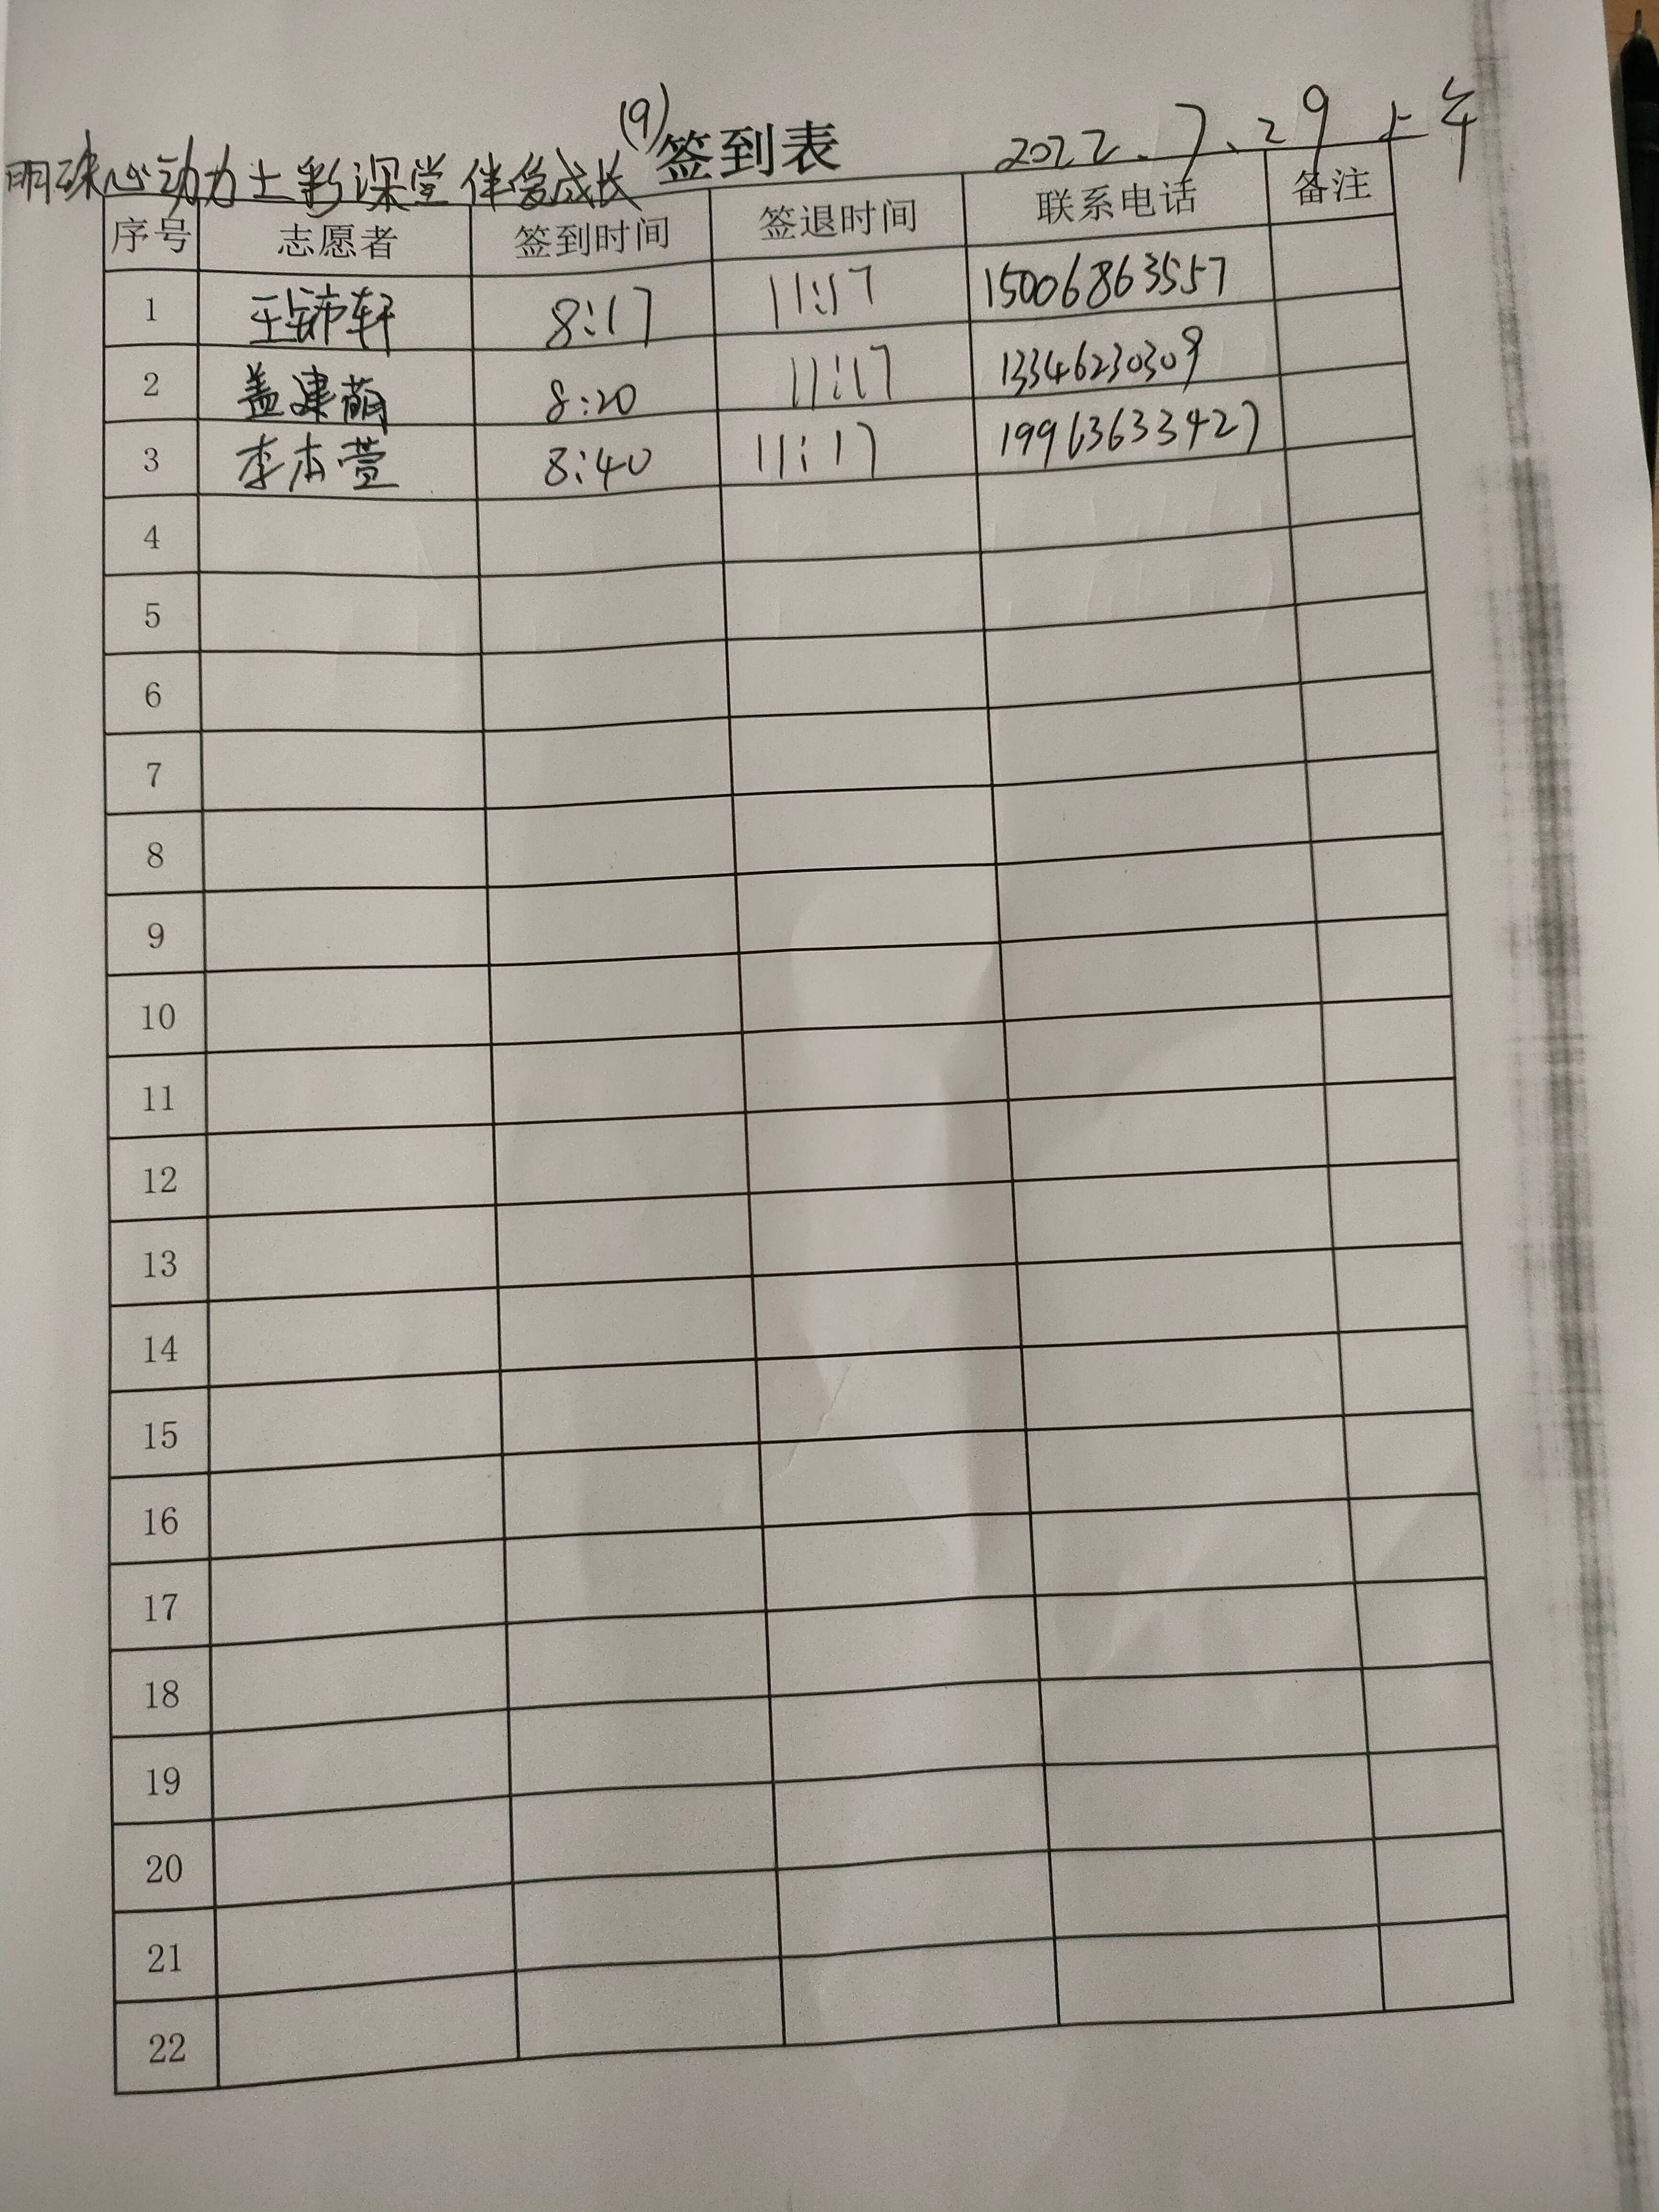 (9)签到表 2022.7.29上午
明珠心动力七彩课堂 伴您成长
序号 志愿者 签到时间 签退时间 联系电话 备注
1 王 轩 8:17 11:17 15006863557
2 盖建萌 8:20 11:17 13346230309
3 李本萱 8:40 11:17 19963633427
4
5
6
7
8
9
10
11
12
13
14
15
16
17
18
19
20
21
22